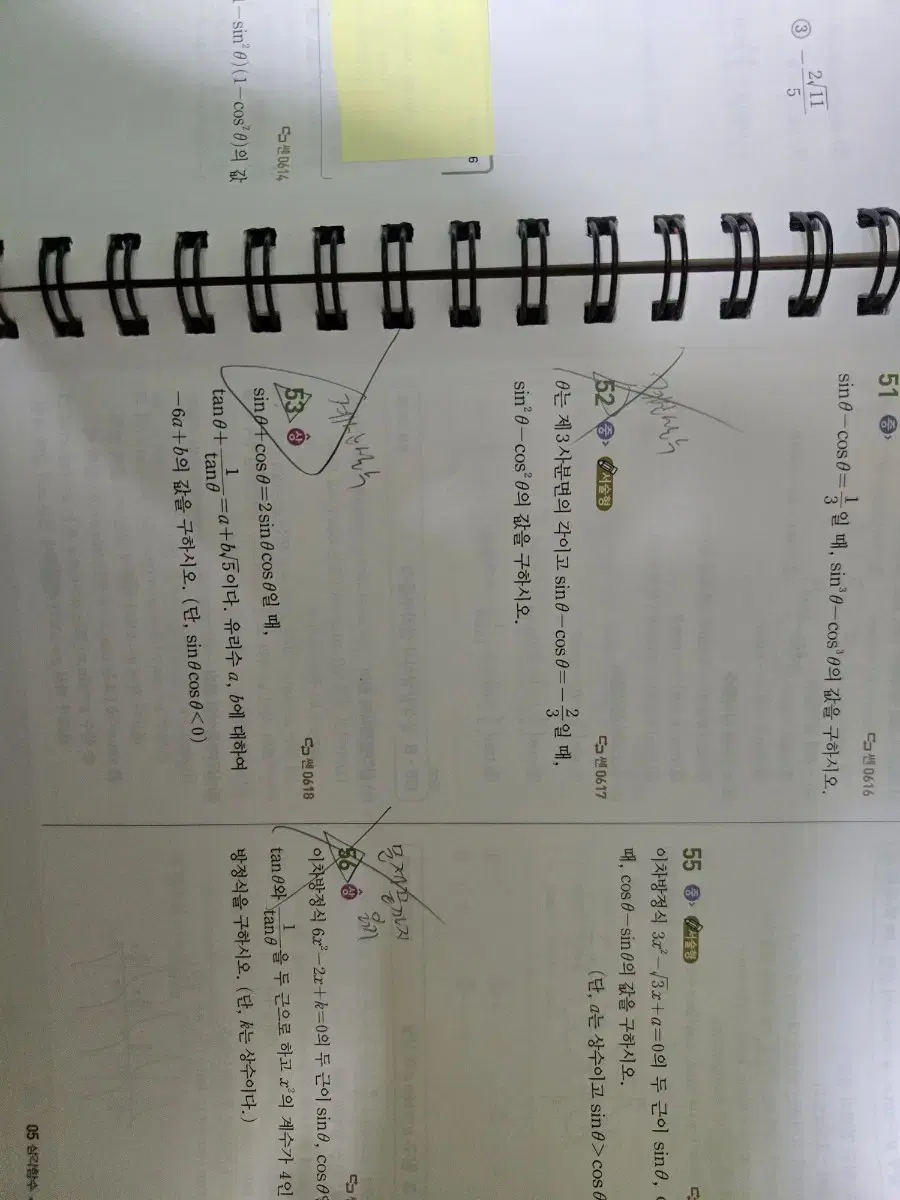 ③ -2√11/5
6
쎈 0614
1-sin²θ)(1-cos²θ)의 값
51 중
sinθ-cosθ=1/3일 때, sin³θ-cos³θ의 값을 구하시오.
쎈 0616
52 중 서술형
θ는 제3사분면의 각이고 sinθ-cosθ=-2/3일 때,
sin²θ-cos²θ의 값을 구하시오.
쎈 0617
53 상
sinθ+cosθ=2sinθcosθ일 때,
tanθ+1/tanθ=a+b√5이다. 유리수 a, b에 대하여
-6a+b의 값을 구하시오. (단, sinθcosθ<0)
쎈 0618
55 중 서술형
이차방정식 3x²-√3x+a=0의 두 근이 sinθ,
때, cosθ-sinθ의 값을 구하시오.
(단, a는 상수이고 sinθ>cosθ
문제끝까지
읽기
56 상
이차방정식 6x²-2x+k=0의 두 근이 sinθ, cosθ
tanθ와 1/tanθ을 두 근으로 하고 x²의 계수가 4인
방정식을 구하시오. (단, k는 상수이다.)
05 삼각함수